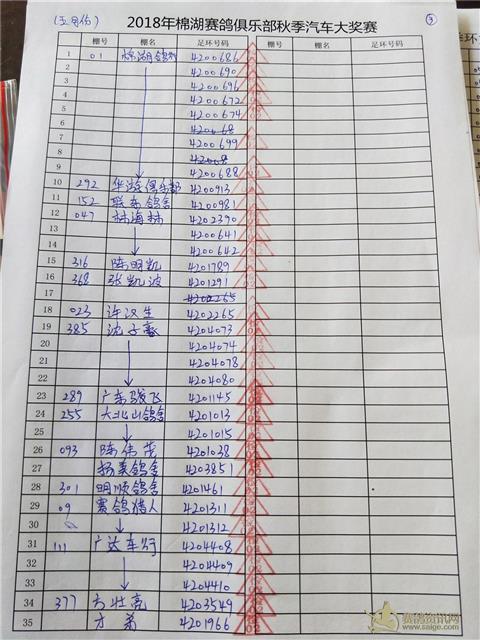 (五月份)
2018年棉湖赛鸽俱乐部秋季汽车大奖赛
③
棚号 棚名 足环号码 棚号 棚名 足环号码
1 01 棉湖鸽 4200686
2 4200690
3 4200696
4 4200672
5 4200674
6 420068
7 4200699
8
9 4200688
10 292 华 俱乐部 4200913
11 152 联泰鸽舍 4200981
12 047 林海林 4202390
13 4200641
14 4200642
15 316 陈明凯 4201789
16 368 张凯波 4201291
17 4202265
18 023 许汉生 4202265
19 385 沈子 4204073
20 4204074
21 4204078
22 4204080
23 289 广东骏飞 4201145
24 255 大北山鸽舍 4201013
25 4201015
26 093 陈伟茂 4201038
27 杨美鸽舍 4203851
28 301 明顺鸽舍 4201461
29 09 赛鸽猎人 4201311
30 4201312
31 111 广达车行 4204408
32 4204409
33 4204410
34 377 方壮亮 4203549
35 才弟 4201966
赛鸽资讯网
www.saige.com